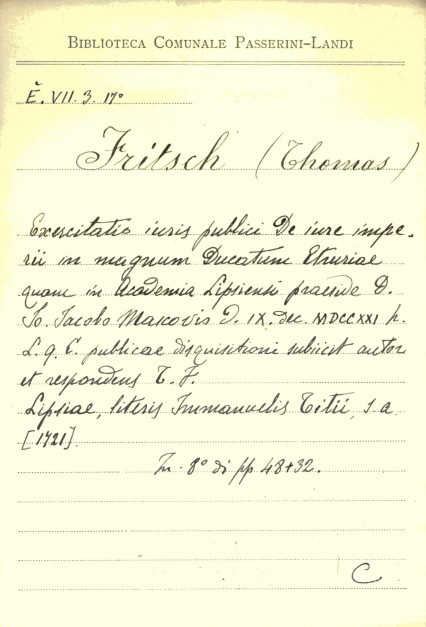 BIBLIOTECA COMUNALE PASSERINI-LANDI
Ě. VII. 3. 17°
Fritsch (Thomas)
Exercitatio iuris publici De iure impe-
rii in magnum Ducatum Etruriae
quam in Academia Lipsiensi praeside D.
Io. Jacobo Mascovio D. IX. dec. MDCCXXI h.
L. q. C. publicae disquisitioni subiicit autor
et respondens T. F.
Lipsiae, literis Immanuelis Titii, s. a
[1721].
In. 8° di pp 48+32.
C